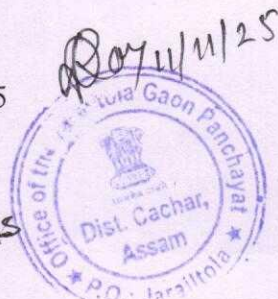 11/11/25
5
Office of the
tola Gaon Panchayat
Dist. Cachar,
Assam
s
★ P.O.: Jarailtola ★